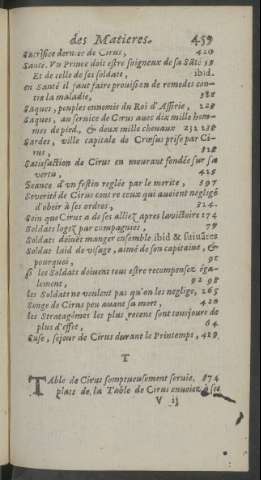 des Matieres. 459
Sacrifice dernier de Cirus, 420
Santé. Vn Prince doit estre soigneux de sa Sãté 58
Et de celle de ses soldats, ibid.
en Santé il faut faire prouision de remedes con-
tre la maladie, 388
Saques, peuples ennemis du Roi d'Assirie, 228
Saques, au seruice de Cirus auec dix mille hom-
mes de pied, & deux mille cheuaux 231 238
Sardes, ville capitale de Crœsus prise par Ci-
rus, 328
Satisfaction de Cirus en mourant fondée sur sa
vertu, 425
Seance d'vn festin reglée par le merite, 397
Seuerité de Cirus contre ceux qui auoient negligé
d'obeir à ses ordres, 324.
Soin que Cirus a de ses alliez apres la victoire 174
Soldats logez par compagnies, 78
Soldats doiuẽt manger ensemble ibid & suiuãtes
Soldat laid de visage, aimé de son capitaine, &
pourquoi, 92
si les Soldats doiuent tous estre recompensez éga-
lement, 92 98
les Soldats ne veulent pas qu'on les neglige, 265
Songe de Cirus peu auant sa mort, 420
les Stratagémes les plus recens sont tousjours de
plus d'effet, 64
Suse, sejour de Cirus durant le Printemps, 429
T
Table de Cirus somptueusement seruie, 374
plats de la Table de Cirus enuoiez à ses
V ij